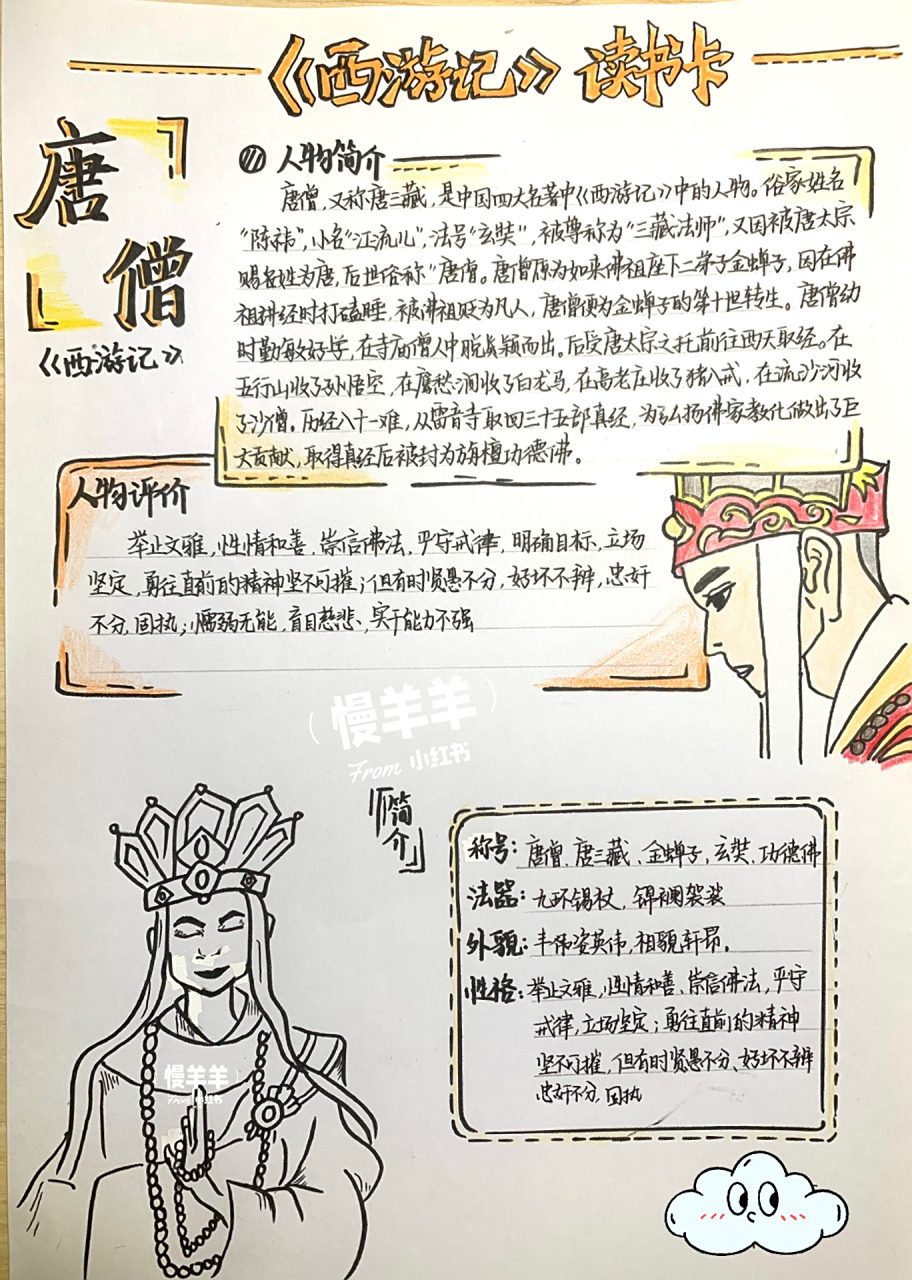 《西游记》读书卡
唐
僧
《西游记》
人物简介
唐僧，又称唐三藏，是中国四大名著中《西游记》中的人物。俗家姓名
"陈祎"，小名"江流儿"，法号"玄奘"，被尊称为"三藏法师"，又因被唐太宗
赐名姓为唐，后世俗称"唐僧。唐僧原为如来佛祖座下二弟子金蝉子，因在佛
祖讲经时打瞌睡，被佛祖贬为凡人，唐僧便为金蝉子的第十世转生。唐僧幼
时勤敏好学，在寺庙僧人中脱颖而出。后受唐太宗之托前往西天取经。在
五行山收了孙悟空，在鹰愁涧收了白龙马，在高老庄收了猪八戒，在流沙河收
了沙僧。历经八十一难，从雷音寺取回三十五部真经，为弘扬佛家教化做出了巨
大贡献，取得真经后被封为旃檀功德佛。
人物评价
举止文雅，性情和善、崇信佛法，严守戒律，明确目标，立场
坚定，勇往直前的精神坚不可摧；但有时贤愚不分，好坏不辨，忠奸
不分，固执；懦弱无能，盲目慈悲、实干能力不强
慢羊羊
From 小红书
「简介」
称号：唐僧、唐三藏、金蝉子，玄奘、功德佛
法器：九环锡杖，锦襕袈裟
外貌：丰伟姿英伟，相貌轩昂。
性格：举止文雅，性情和善、崇信佛法，严守
戒律，立场坚定；勇往直前的精神
坚不可摧，但有时贤愚不分、好坏不辨
忠奸不分，固执
慢羊羊
From 小红书